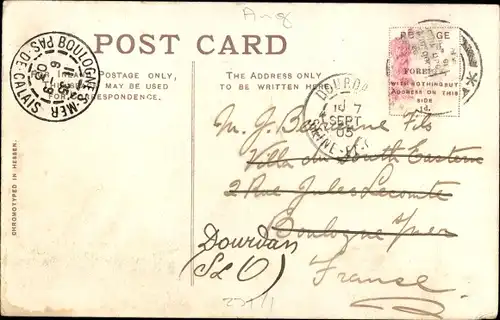 Ang
POST CARD
FOR INLAND POSTAGE ONLY,
MAY BE USED
CORRESPONDENCE.
THE ADDRESS ONLY
TO BE WRITTEN HERE.
BOULOGNE-S-MER
PAS-DE-CALAIS
DOURDAN
SEPT
05
POSTAGE
FOREIGN
WITH NOTHING BUT
ADDRESS ON THIS
SIDE
1d.
M. J. Fils
Villa du South Eastern
2 Rue Jules Lecomte
Boulogne s/mer
Dourdan
(S & O)
France
CHROMOTYPED IN HESSEN.